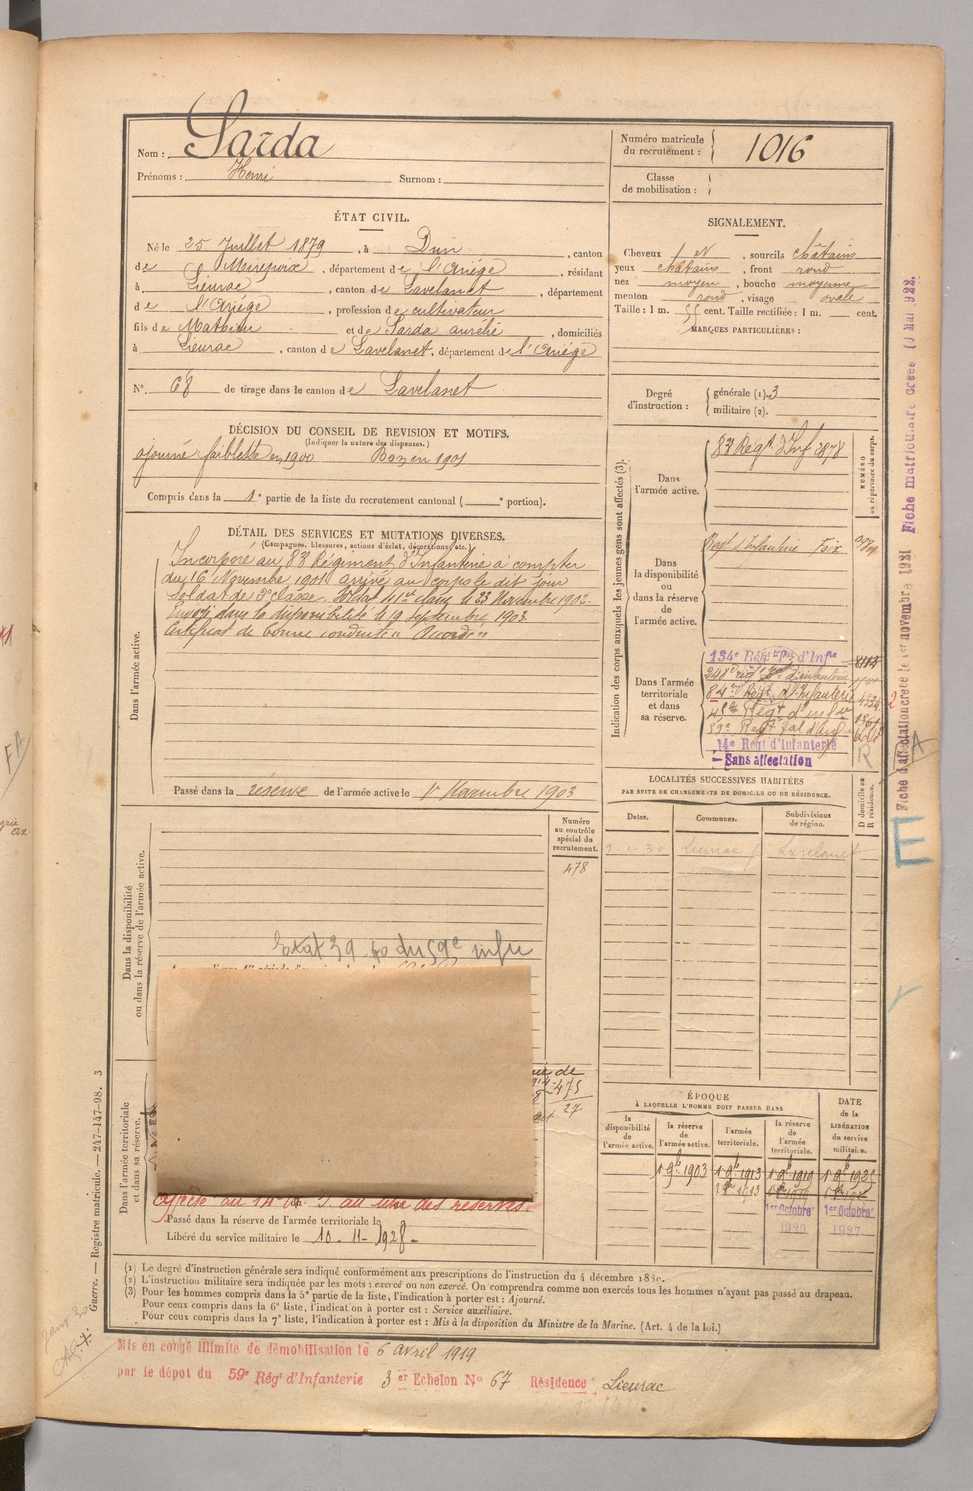 Nom : Sarda
Prénoms : Henri Surnom :
Numéro matricule du recrutement : 1016
Classe de mobilisation :
ÉTAT CIVIL.
Né le 25 Juillet 1879, à Dun, canton
de Mirepoix, département de l'Ariége, résidant
à Lieurac, canton de Lavelanet, département
de l'Ariége, profession de cultivateur
fils de Mathieu et de Sarda aurélie, domiciliés
à Lieurac, canton de Lavelanet, département de l'Ariége
N° 68 de tirage dans le canton de Lavelanet
SIGNALEMENT.
Cheveux et, sourcils châtains
yeux châtains, front rond
nez moyen, bouche moyenne
menton rond, visage ovale
Taille : 1 m. 55 cent. Taille rectifiée : 1 m. cent.
MARQUES PARTICULIÈRES :
Degré d'instruction : générale (1). 3
militaire (2).
DÉCISION DU CONSEIL DE REVISION ET MOTIFS.
(Indiquer la nature des dispenses.)
ajourné faiblesse en 1900 Bon en 1901
Compris dans la 1e partie de la liste du recrutement cantonal ( e portion).
DÉTAIL DES SERVICES ET MUTATIONS DIVERSES.
(Campagnes, blessures, actions d'éclat, décorations, etc.)
Dans l'armée active.
Incorporé au 83e Régiment d'Infanterie à compter
du 16 Novembre 1901 arrivé au corps le dit jour
Soldat de 2e classe. Soldat de 1re classe le 23 Novembre 1902.
Envoyé dans la disponibilité le 19 septembre 1903.
Certificat de bonne conduite "Accordé"
Passé dans la réserve de l'armée active le 1er Novembre 1903
Indication des corps auxquels les jeunes gens sont affectés (3).
NUMÉRO au répertoire du corps.
Dans l'armée active.
83e Régt d'Inf 2878
Dans la disponibilité ou dans la réserve de l'armée active.
Régt d'Infanterie Foix
Dans l'armée territoriale et dans sa réserve.
134e Régt Tal d'Infie
14e Régt d'Infanterie
Sans affectation
LOCALITÉS SUCCESSIVES HABITÉES
PAR SUITE DE CHANGEMENTS DE DOMICILE OU DE RÉSIDENCE.
Dates. Communes. Subdivisions de région. D domicile ou R résidence.
30 Lieurac Lavelanet
Dans la disponibilité ou dans la réserve de l'armée active.
Numéro au contrôle spécial du recrutement.
478
39 40 du 59e infie
475
27
Dans l'armée territoriale et dans sa réserve.
affecté au 14e R. I au titre des réserves.
Passé dans la réserve de l'armée territoriale le
Libéré du service militaire le 10-11-1928-
ÉPOQUE
À LAQUELLE L'HOMME DOIT PASSER DANS
la disponibilité de l'armée active.
la réserve de l'armée active.
l'armée territoriale.
la réserve de l'armée territoriale.
DATE de la LIBÉRATION du service militaire.
1 9bre 1903 1 9bre 1913 1 9bre 1919 1 9bre 1925
1 9bre 1913
1er Octobre 1er Octobre
1920 1927
(1) Le degré d'instruction générale sera indiqué conformément aux prescriptions de l'instruction du 4 décembre 1889.
(2) L'instruction militaire sera indiquée par les mots : exercé ou non exercé. On comprendra comme non exercés tous les hommes n'ayant pas passé au drapeau.
(3) Pour les hommes compris dans la 5e partie de la liste, l'indication à porter est : Ajourné.
Pour ceux compris dans la 6e liste, l'indication à porter est : Service auxiliaire.
Pour ceux compris dans la 7e liste, l'indication à porter est : Mis à la disposition du Ministre de la Marine. (Art. 4 de la loi.)
Mis en congé illimité de démobilisation le 6 avril 1919
par le dépot du 59e Régt d'Infanterie 3 er Echelon N° 67 Résidence Lieurac
Guerre. — Registre matricule. — 247-147-98. 3
Fiche d'affectation créée le 1er novembre 1921 Fiche matriculaire créée 10 Mai 1922.
FA
E